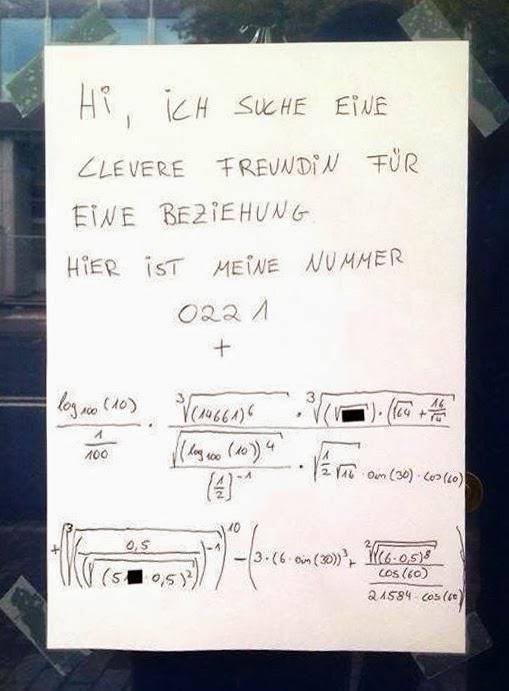 Hi, ICH SUCHE EINE
CLEVERE FREUNDIN FÜR
EINE BEZIEHUNG.
HIER IST MEINE NUMMER
0221
+
log₁₀₀(10) / (1/100) · ∛(14661)⁶ · ∛((√) · (√64 + 16/√4)) / (√(log₁₀₀(10))⁴ / [1/2]⁻¹ · √(1/2 √16) · sin(30) · cos(60))
+ (∛((0,5 / (√(5 · 0,5)²))⁻¹))¹⁰ − (3·(6·sin(30))³ + (²√((6·0,5)⁸) / cos(60)) / (21584·cos(60)))